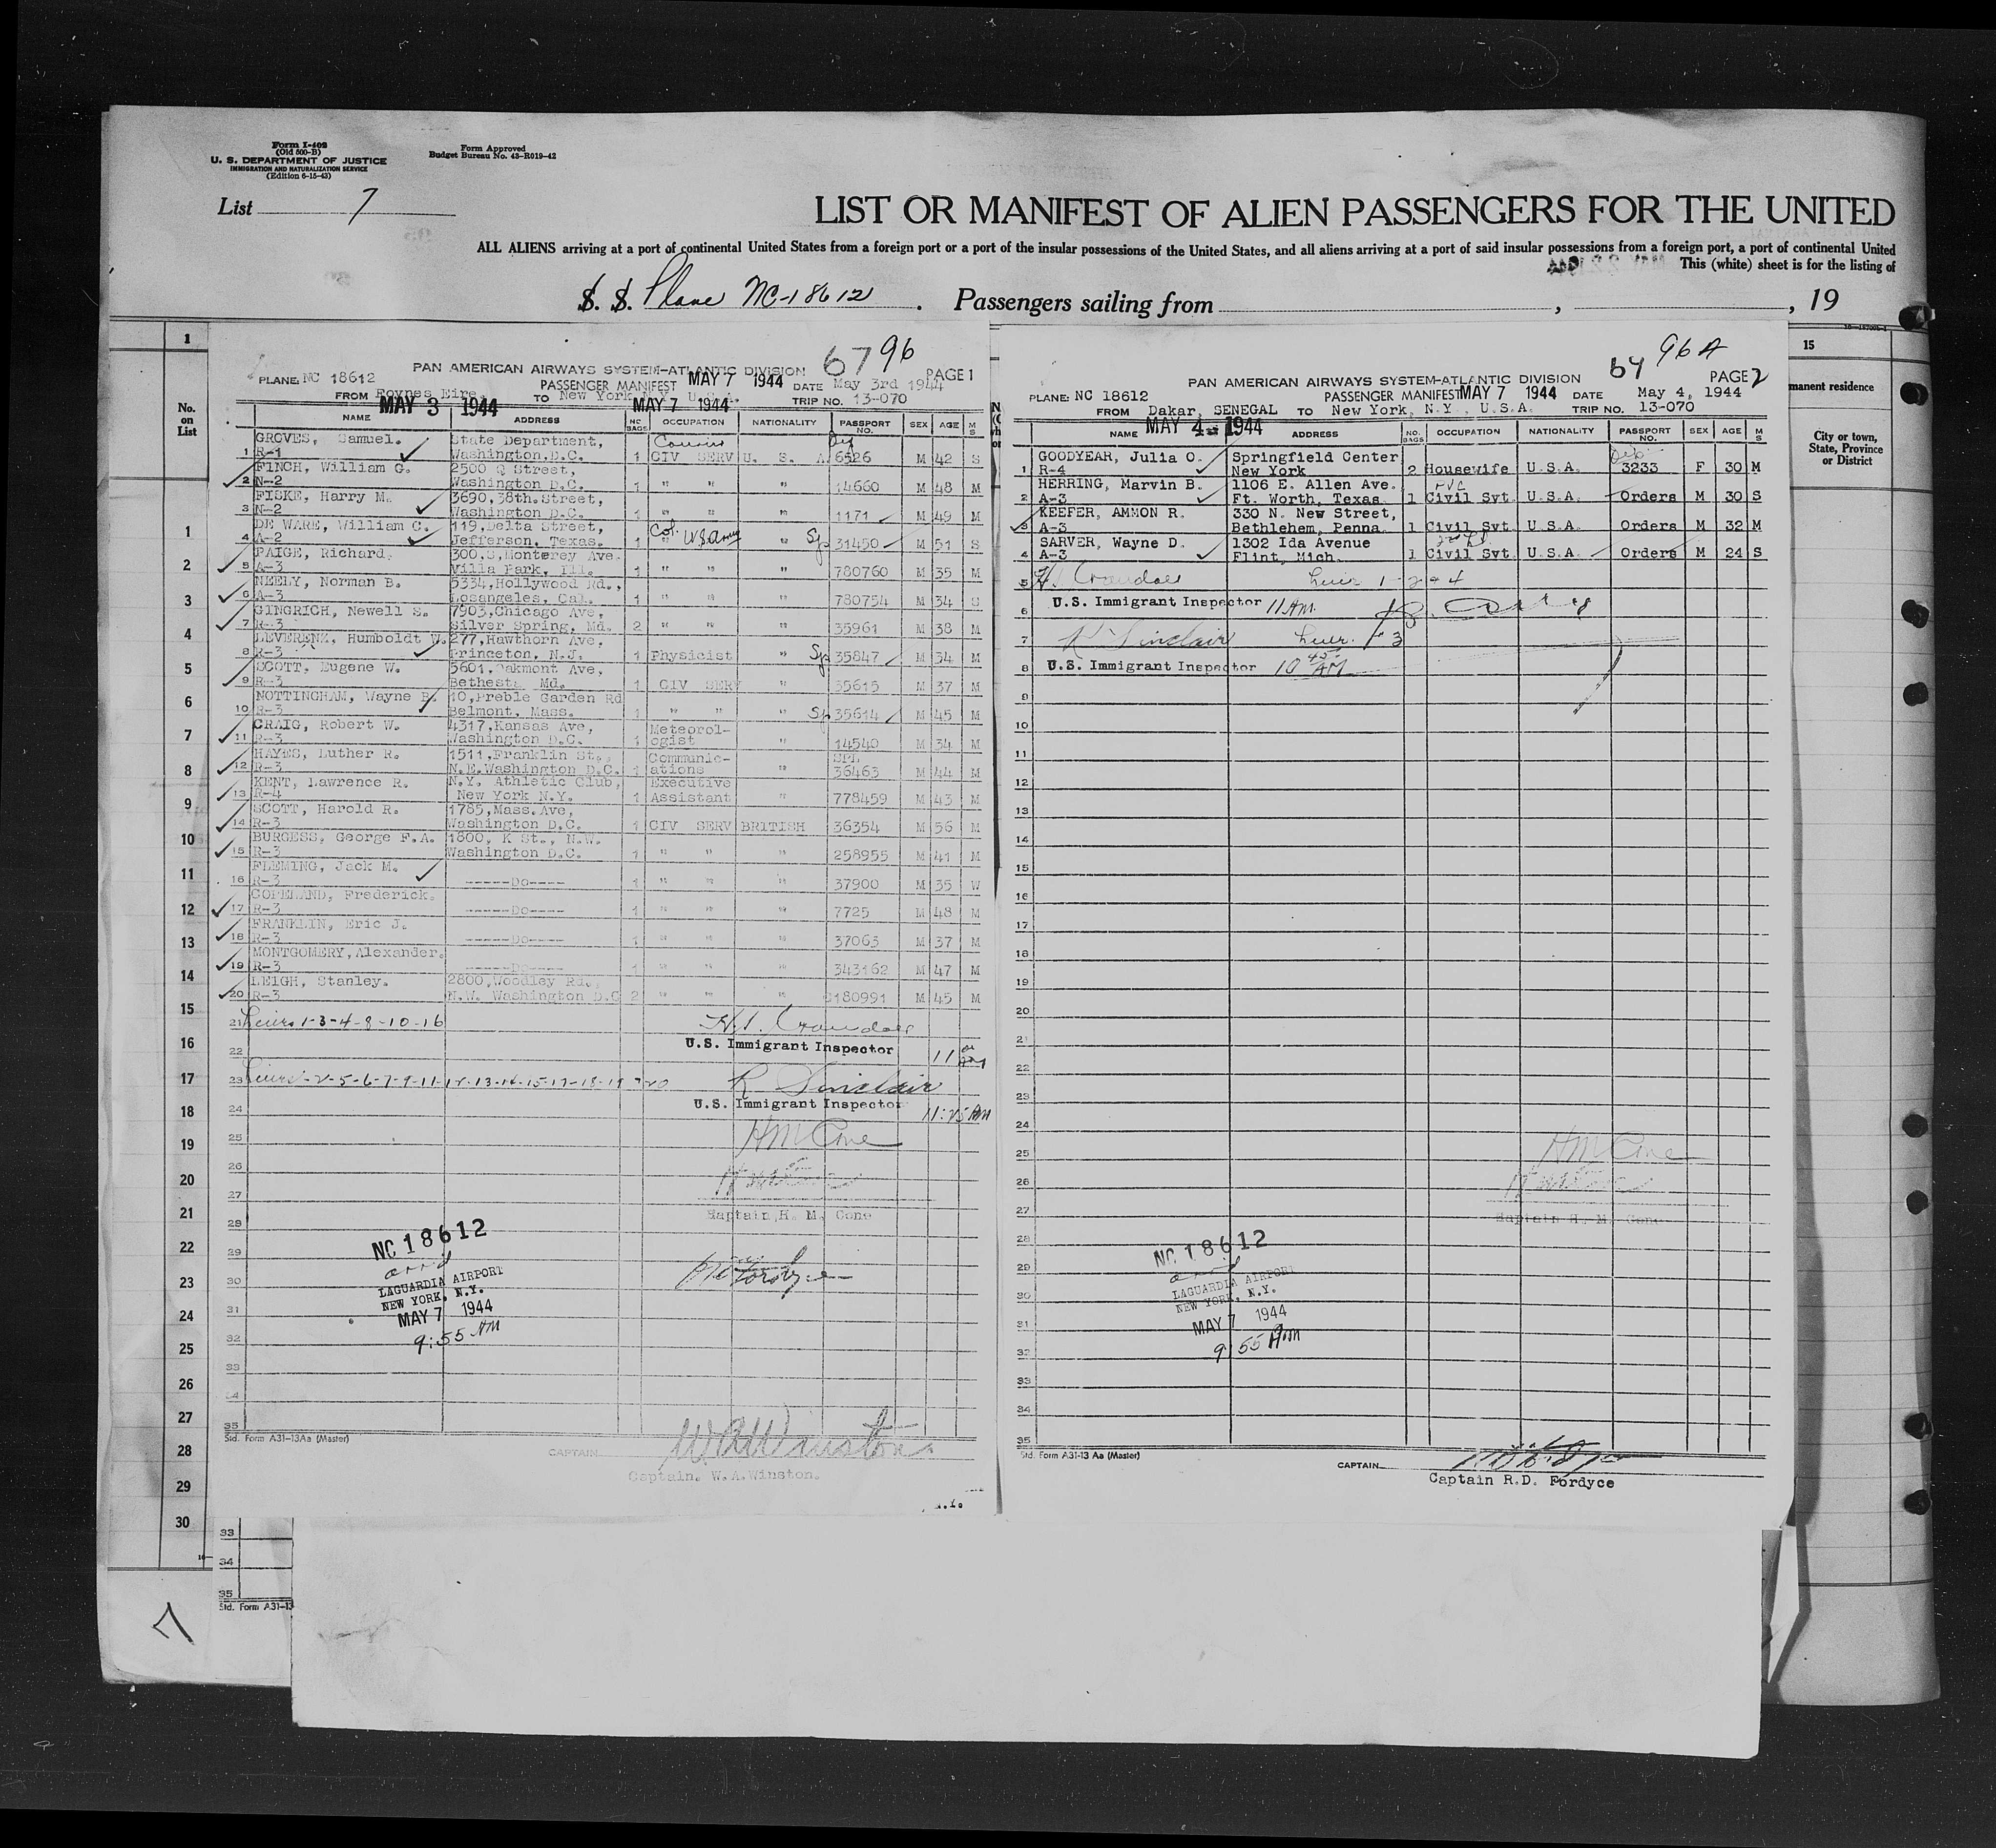 Form I-402
(Old 500-B)
U. S. DEPARTMENT OF JUSTICE
IMMIGRATION AND NATURALIZATION SERVICE
(Edition 6-15-43)
Form Approved
Budget Bureau No. 43-R019-42
List 7
LIST OR MANIFEST OF ALIEN PASSENGERS FOR THE UNITED
ALL ALIENS arriving at a port of continental United States from a foreign port or a port of the insular possessions of the United States, and all aliens arriving at a port of said insular possessions from a foreign port, a port of continental United
This (white) sheet is for the listing of
S. S. Plane NC-18612. Passengers sailing from , , 19
1
No. on List
1
2
3
4
5
6
7
8
9
10
11
12
13
14
15
16
17
18
19
20
21
22
23
24
25
26
27
28
29
30
7
67 96
PAN AMERICAN AIRWAYS SYSTEM-ATLANTIC DIVISION PAGE 1
PLANE: NC 18612 PASSENGER MANIFEST MAY 7 1944 DATE May 3rd 1944
FROM Foynes Eire. TO New York N.Y. U.S.A. TRIP NO. 13-070
MAY 3 1944 MAY 7 1944
NAME ADDRESS NO BAGS OCCUPATION NATIONALITY PASSPORT NO. SEX AGE M S
GROVES, Samuel. State Department, Courier
1 R-1 Washington,D.C. 1 CIV SERV U. S. A. 6526 M 42 S
FINCH, William G. 2500 Q Street,
2 N-2 Washington D.C. 1 " " " 14660 M 48 M
FISKE, Harry M. 3690,38th.Street,
3 N-2 Washington D.C. 1 " " " 1171 M 49 M
DE WARE, William C. 119,Delta Street, Col. US Army
4 A-2 Jefferson, Texas. 1 " " Sp 31450 M 51 S
PAIGE, Richard. 300.S.Monterey Ave.
5 A-3 Villa Park, Ill. 1 " " " 780760 M 35 M
NEELY, Norman B. 5334,Hollywood Rd.,
6 A-3 Losangeles, Cal. 1 " " " 780754 M 34 S
GINGRICH, Newell S. 7903,Chicago Ave,
7 R-3 Silver Spring, Md. 2 " " " 35961 M 38 M
LEVERENZ, Humboldt W. 277,Hawthorn Ave,
8 R-3 Princeton, N.J. 1 Physicist " Sp 35847 M 34 M
SCOTT, Eugene W. 5601,Oakmont Ave,
9 R-3 Bethesta Md. 1 CIV SERV " 35615 M 37 M
NOTTINGHAM, Wayne B. 10,Preble Garden Rd
10 R-3 Belmont, Mass. 1 " " " Sp 35614 M 45 M
CRAIG, Robert W. 4317,Kansas Ave, Meteorol-
11 R-3 Washington D.C. 1 ogist " 14540 M 34 M
HAYES, Luther R. 1511,Franklin St., Communic- SPL
12 R-3 N.E.Washington D.C. 1 ations " 36463 M 44 M
KENT, Lawrence R. N.Y. Athletic Club, Executive
13 R-4 New York N.Y. 1 Assistant " 778459 M 43 M
SCOTT, Harold R. 1785,Mass.Ave,
14 R-3 Washington D.C. 1 CIV SERV BRITISH 36354 M 56 M
BURGESS, George F.A. 1800, K St., N.W.
15 R-3 Washington D.C. 1 " " " 258955 M 41 M
FLEMING, Jack M.
16 R-3 -----Do---- 1 " " " 37900 M 35 W
COPELAND, Frederick.
17 R-3 -----Do---- 1 " " " 7725 M 48 M
FRANKLIN, Eric J.
18 R-3 -----Do---- 1 " " " 37063 M 37 M
MONTGOMERY,Alexander.
19 R-3 -----Do---- 1 " " " 343162 M 47 M
LEIGH, Stanley. 2800,Woodley Rd.,
20 R-3 N.W. Washington D.C 2 " " " 180991 M 45 M
21 1-3-4-8-10-16
U.S. Immigrant Inspector
22 11
23 2-5-6-7-9-11-12-13-14-15-17-18-19 20 R Sinclair
U.S. Immigrant Inspector
24 11:25 AM
25 HM Cone
26
27
Captain H. M. Cone
28
NC 18612
29 arrd
30 LAGUARDIA AIRPORT Fordyce
NEW YORK, N.Y.
31 MAY 7 1944
32 9:55 AM
33
34
35
Std. Form A31-13Aa (Master)
CAPTAIN WA Winston
Captain. W.A.Winston.
33
34
35
Std. Form A31-13
64 96 A
PAN AMERICAN AIRWAYS SYSTEM-ATLANTIC DIVISION PAGE 2
PLANE: NC 18612 PASSENGER MANIFEST MAY 7 1944 DATE May 4, 1944
FROM Dakar, SENEGAL TO New York, N.Y., U.S.A. TRIP NO. 13-070
MAY 4 1944
NAME ADDRESS NO. BAGS OCCUPATION NATIONALITY PASSPORT NO. SEX AGE M S
GOODYEAR, Julia O. Springfield Center
1 R-4 New York 2 Housewife U.S.A. 3233 F 30 M
HERRING, Marvin B. 1106 E. Allen Ave.
2 A-3 Ft. Worth, Texas 1 Civil Svt. U.S.A. Orders M 30 S
KEEFER, AMMON R. 330 N. New Street,
3 A-3 Bethlehem, Penna. 1 Civil Svt. U.S.A. Orders M 32 M
SARVER, Wayne D. 1302 Ida Avenue
4 A-3 Flint, Mich. 1 Civil Svt. U.S.A. Orders M 24 S
5 Crandall 1-2-4
6 U.S. Immigrant Inspector 11 AM
7 R Sinclair 3
8 U.S. Immigrant Inspector 10 45 AM
9
10
11
12
13
14
15
16
17
18
19
20
21
22
23
24
25 HM Cone
26
27 Captain H. M. Cone
28
NC 18612
29 arrd
LAGUARDIA AIRPORT
30 NEW YORK, N.Y.
31 MAY 7 1944
32 9:55 AM
33
34
35
Std. Form A31-13 Aa (Master)
CAPTAIN
Captain R.D. Fordyce
15
manent residence
City or town, State, Province or District